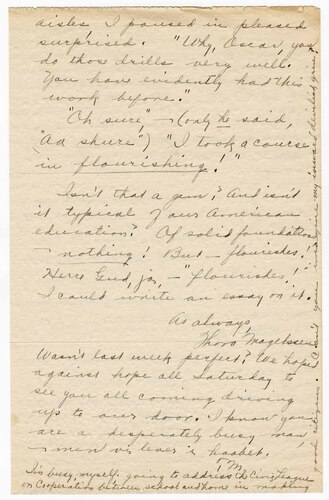 aisles I paused in pleased
surprised. "Why, Oscar, you
do those drills very well.
You have evidently had this
work before."
"Oh sure," (only he said,
"Ad shure") "I took a course
in flourishing!"
Isn't that a gem? And isn't
it typical of our American
education? Of solid foundation
— nothing! But — flourishes!
Herre Gud, ja, — "flourishes!"
I could write an essay on it.
As always,
Thoro
Wasn't last week perfect? We hoped
against hope all Saturday to
see you all coming driving
up to our door. I know you
are a desperately busy man
men vi lever i haabet.
M
I'm busy myself: going to address the Civic League
on Cooperation between school and home in making
good citizens. Can't you imagine my inward devilish grin